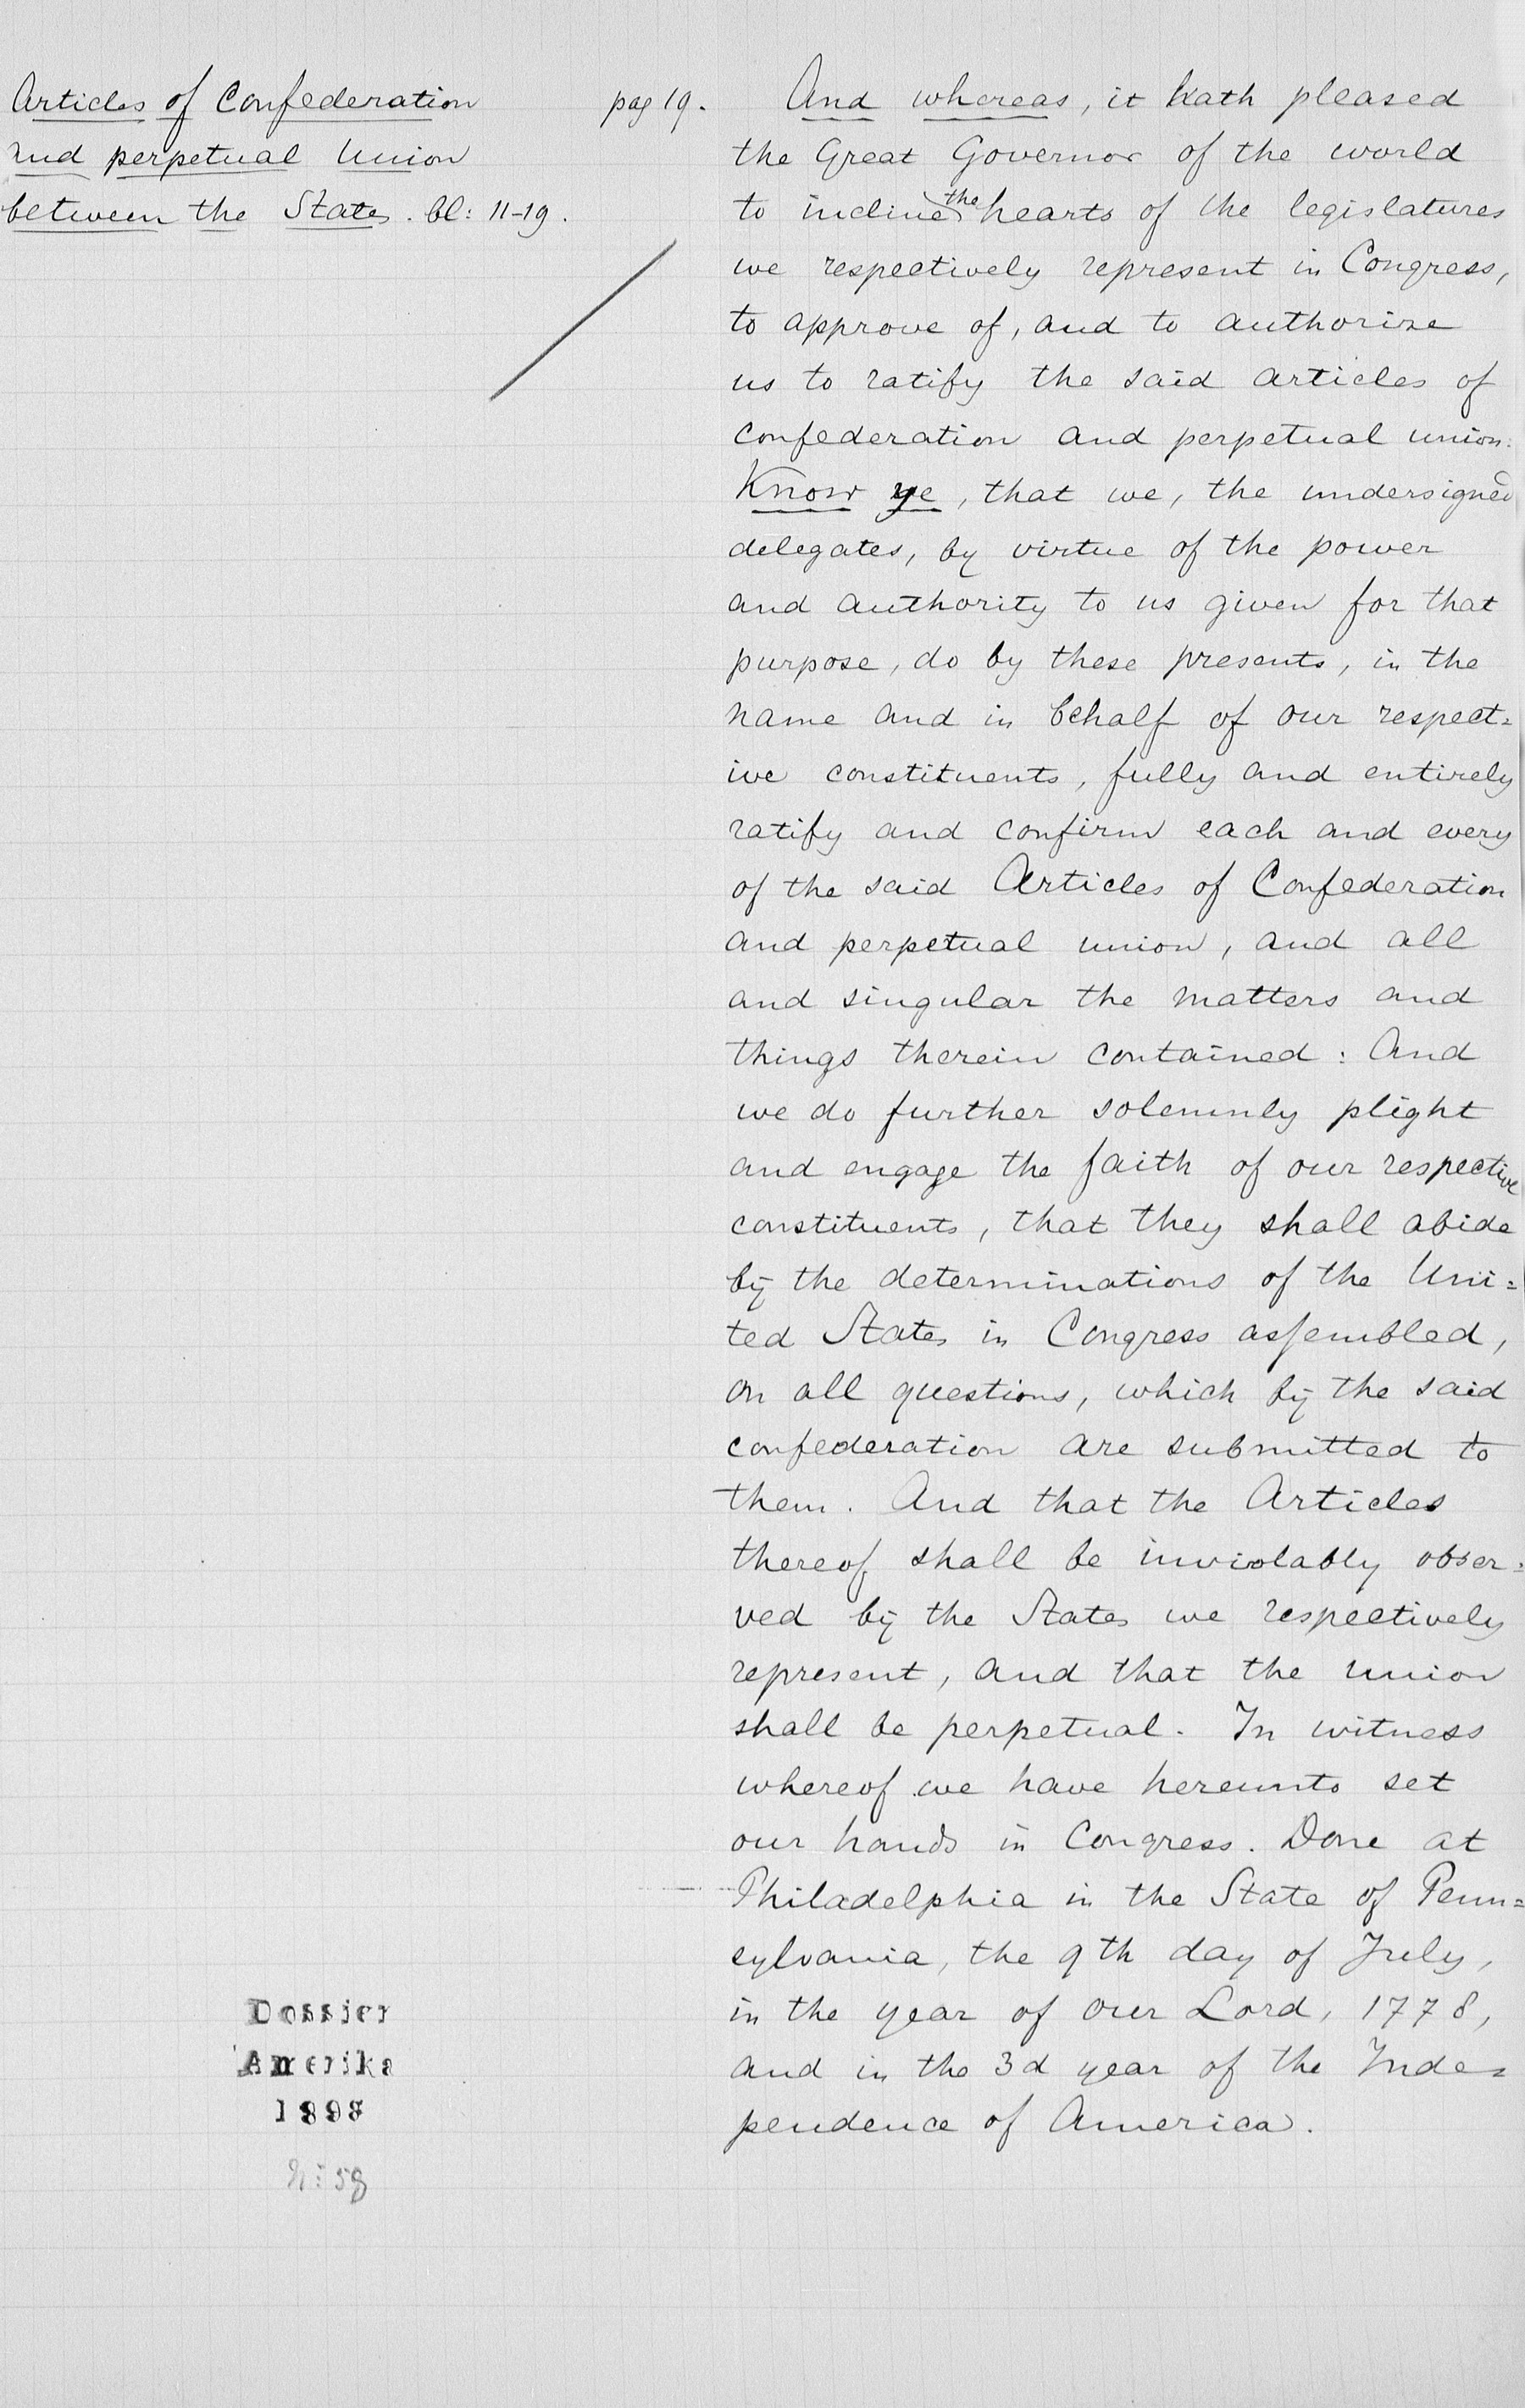 Articles of Confederation
and perpetual Union
between the States. bl: 11-19.
pag 19.
And whereas, it hath pleased
the Great Governor of the world
to incline the hearts of the legislatures
we respectively represent in Congress,
to approve of, and to authorize
us to ratify the said articles of
confederation and perpetual union:
Know ye, that we, the undersigned
delegates, by virtue of the power
and authority to us given for that
purpose, do by these presents, in the
name and in behalf of our respect=
ive constituents, fully and entirely
ratify and confirm each and every
of the said Articles of Confederation
and perpetual union, and all
and singular the matters and
things therein contained: And
we do further solemnly plight
and engage the faith of our respective
constituents, that they shall abide
by the determinations of the Uni=
ted States in Congress assembled,
on all questions, which by the said
confederation are submitted to
them. And that the Articles
thereof shall be inviolably obser=
ved by the States we respectively
represent, and that the union
shall be perpetual. In witness
whereof we have hereunto set
our hands in Congress. Done at
Philadelphia in the State of Penn=
sylvania, the 9th day of July,
in the year of our Lord, 1778,
and in the 3d year of the Inde=
pendence of America.
Dossier
Amerika
1898